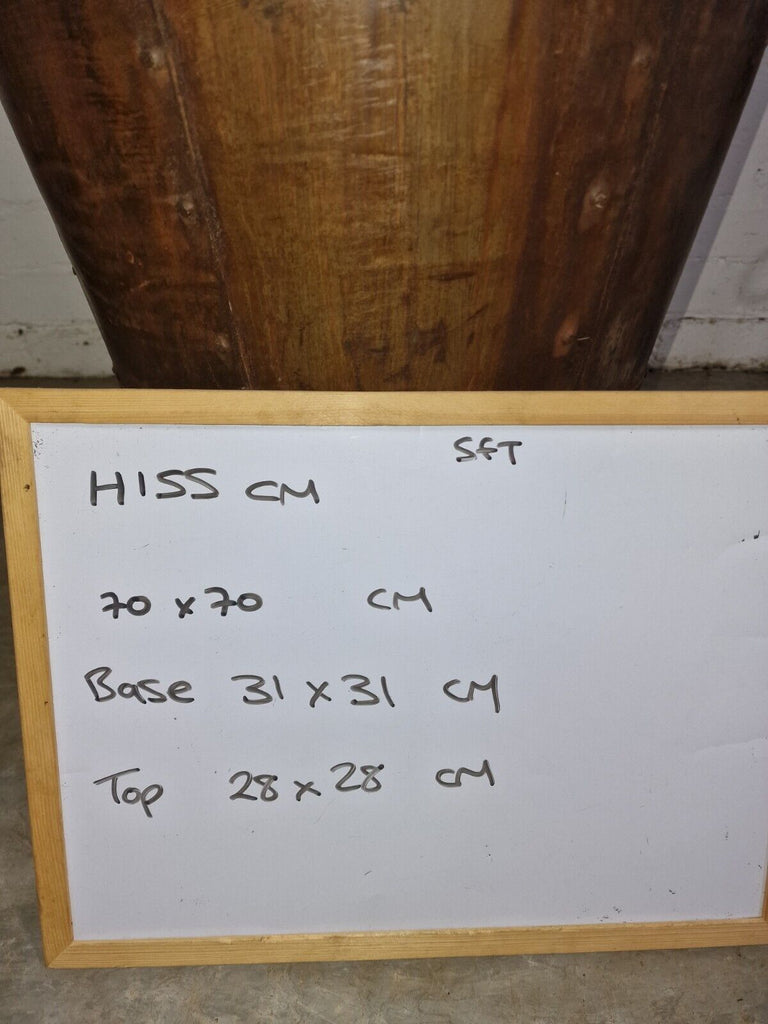 5FT
H155 CM
70 x 70 CM
Base 31 x 31 CM
Top 28 x 28 CM